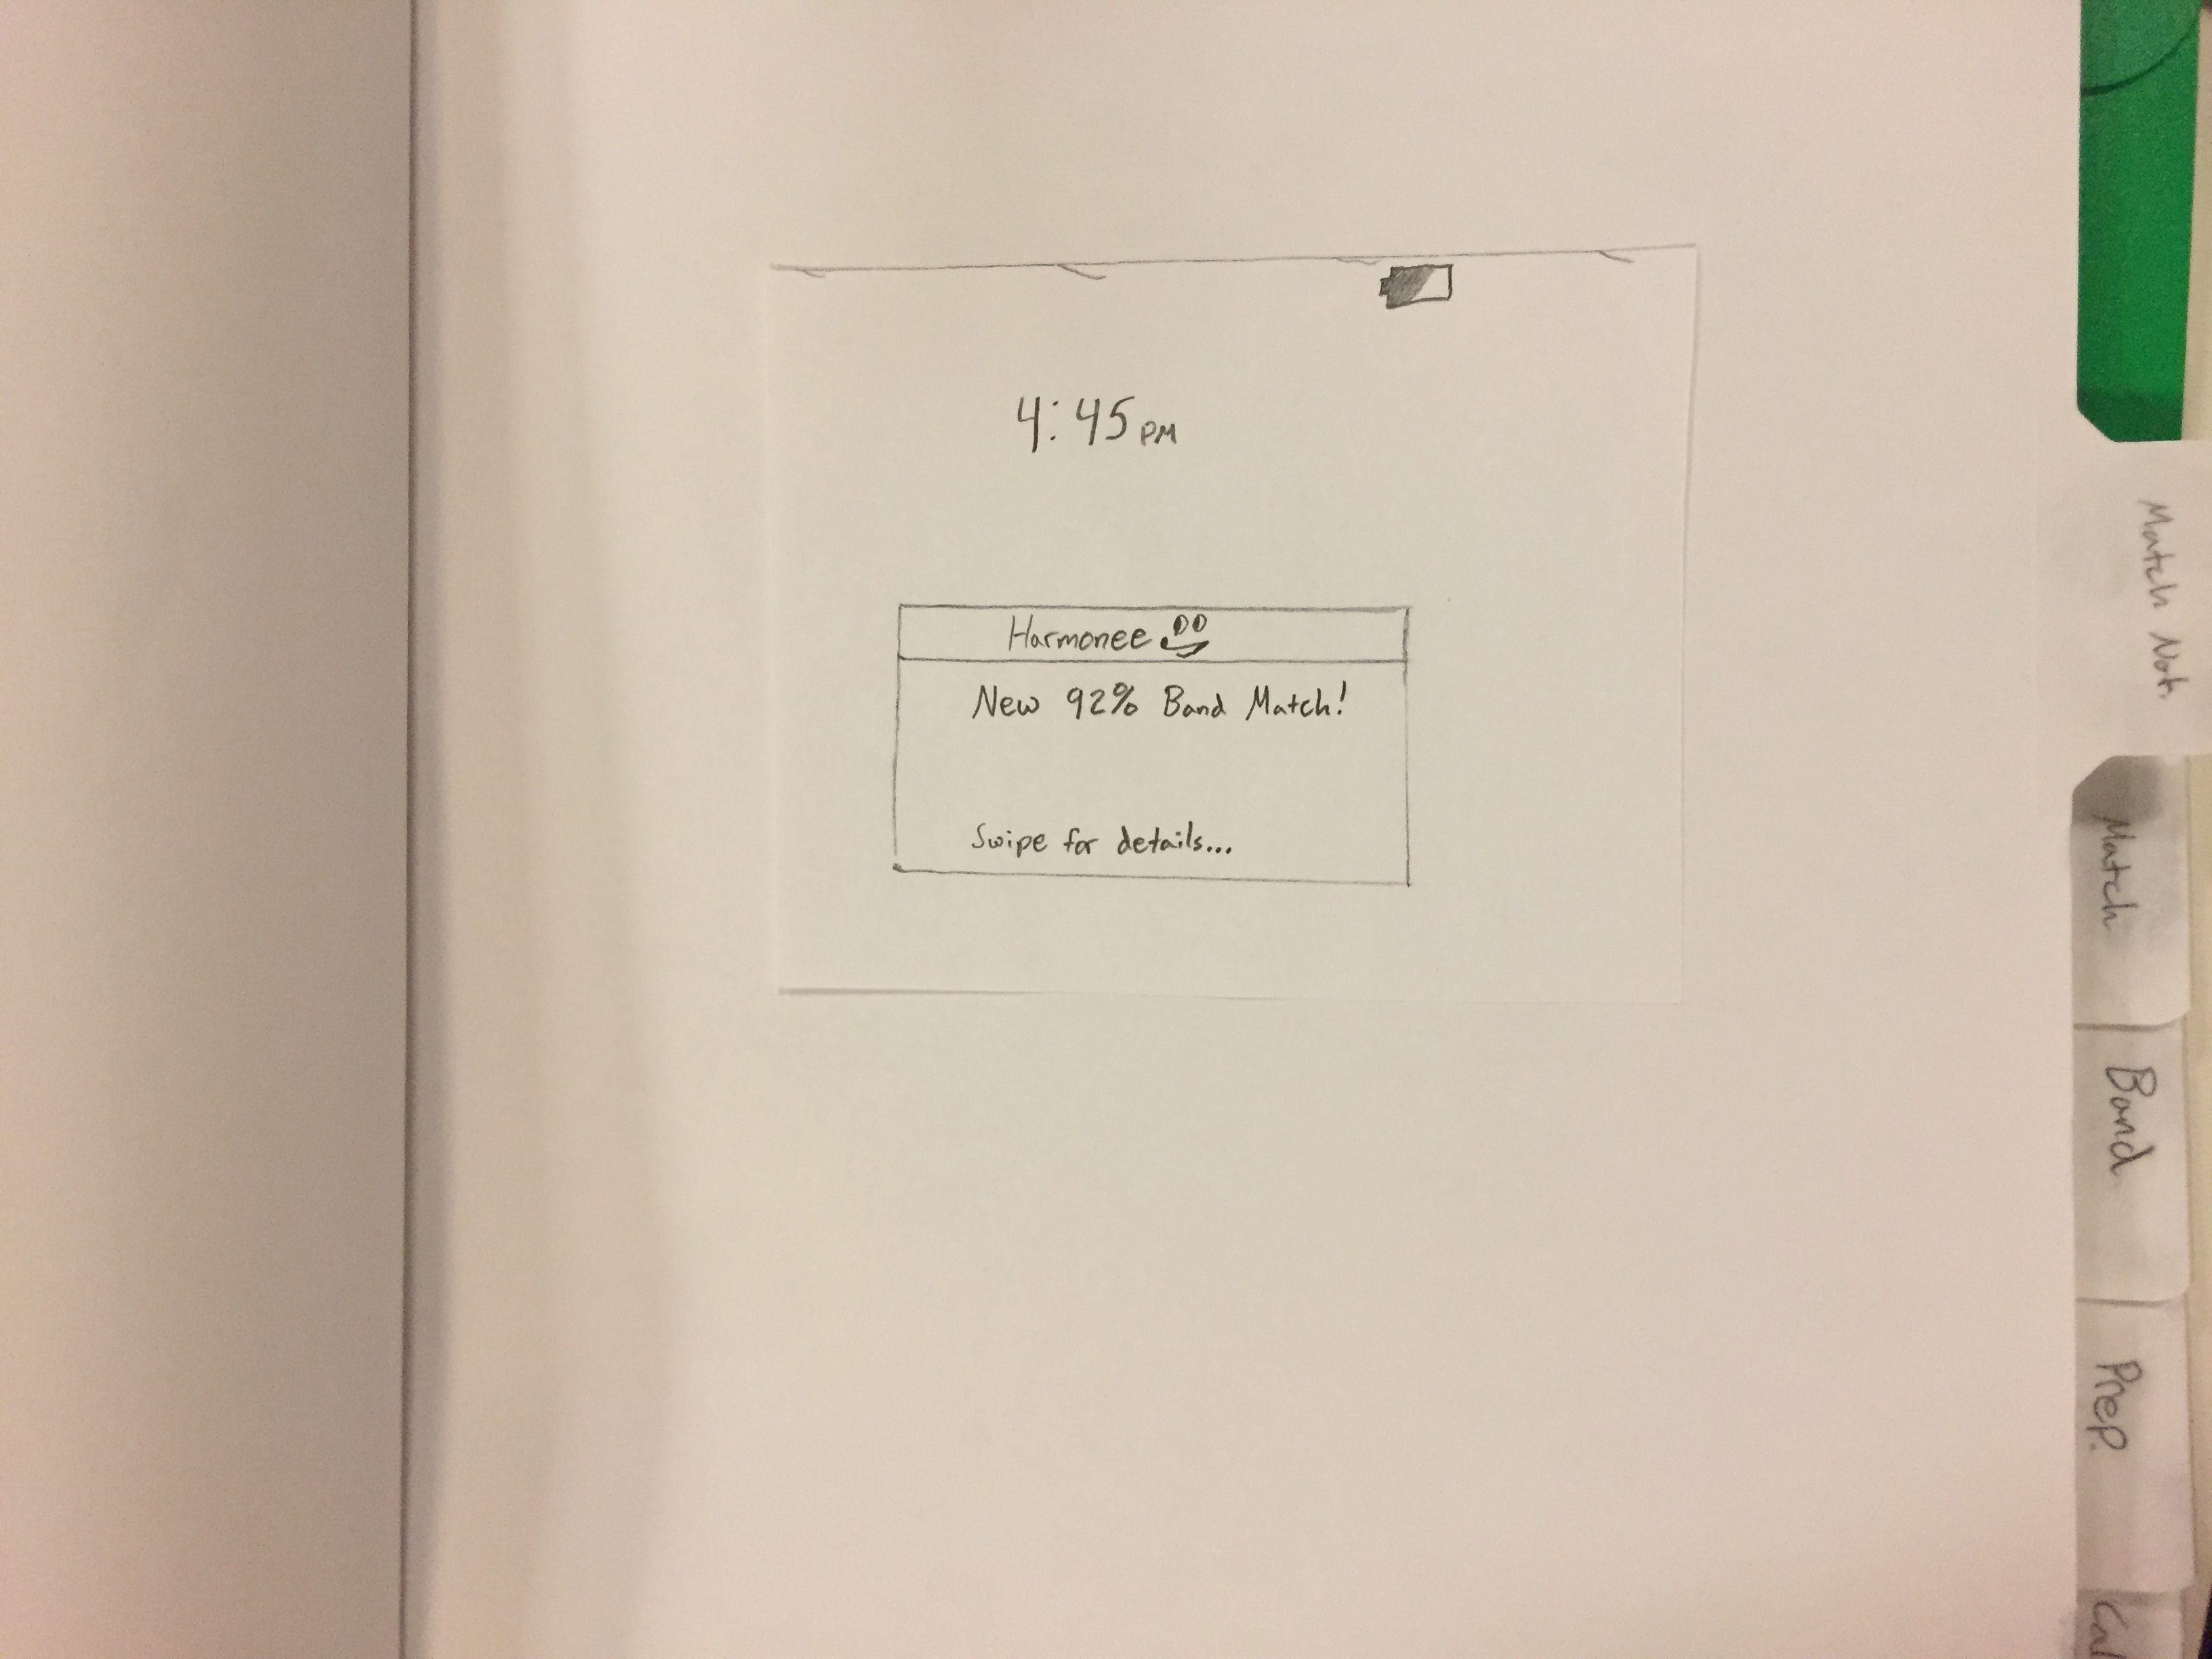 4:45 PM
Harmonee
New 92% Band Match!
Swipe for details...
Match Not.
Match
Band
Prep.
Cal